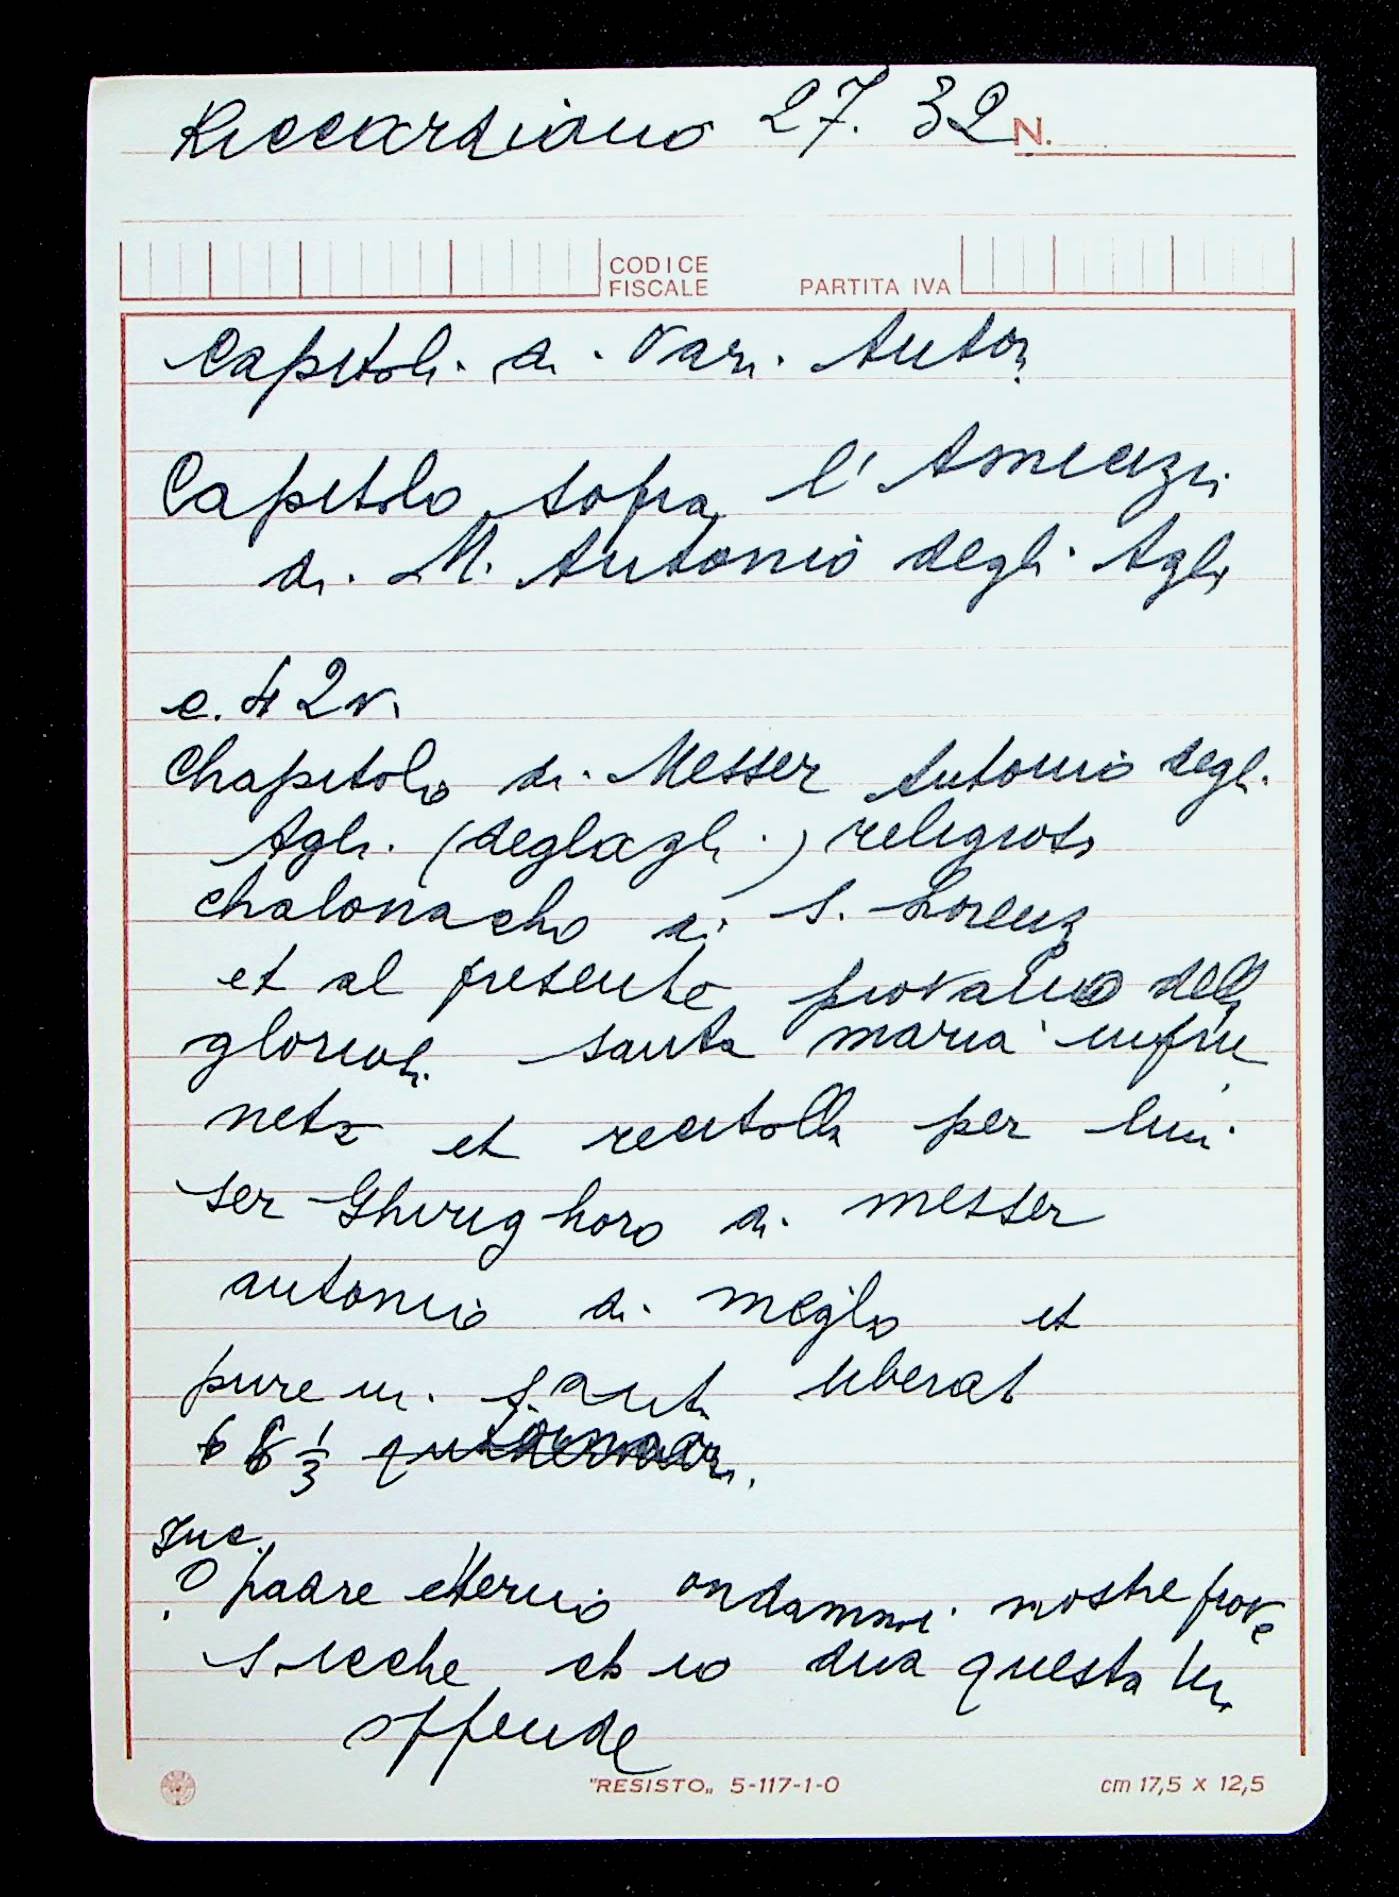 Riccardiano 27.32 N.
CODICE FISCALE PARTITA IVA
Capitoli di Vari Autori
Capitolo sopra l'Amicizi
di M. Antonio degli Agli
c. 42v.
Chapitolo di Messer Antonio degli
Agli (deglagli) religioso
chalonacho di S. Lorenz
et al presente piovano della
gloriosi santa maria inpru
neta et recitolla per lui
ser Ghirighoro di messer
antonio di meglio et
pure in Santa liberat
68 1/3
Inc.
O padre etterno ondammi nostre
sicche ch io dica questa
offende
"RESISTO„ 5-117-1-0 cm 17,5 x 12,5